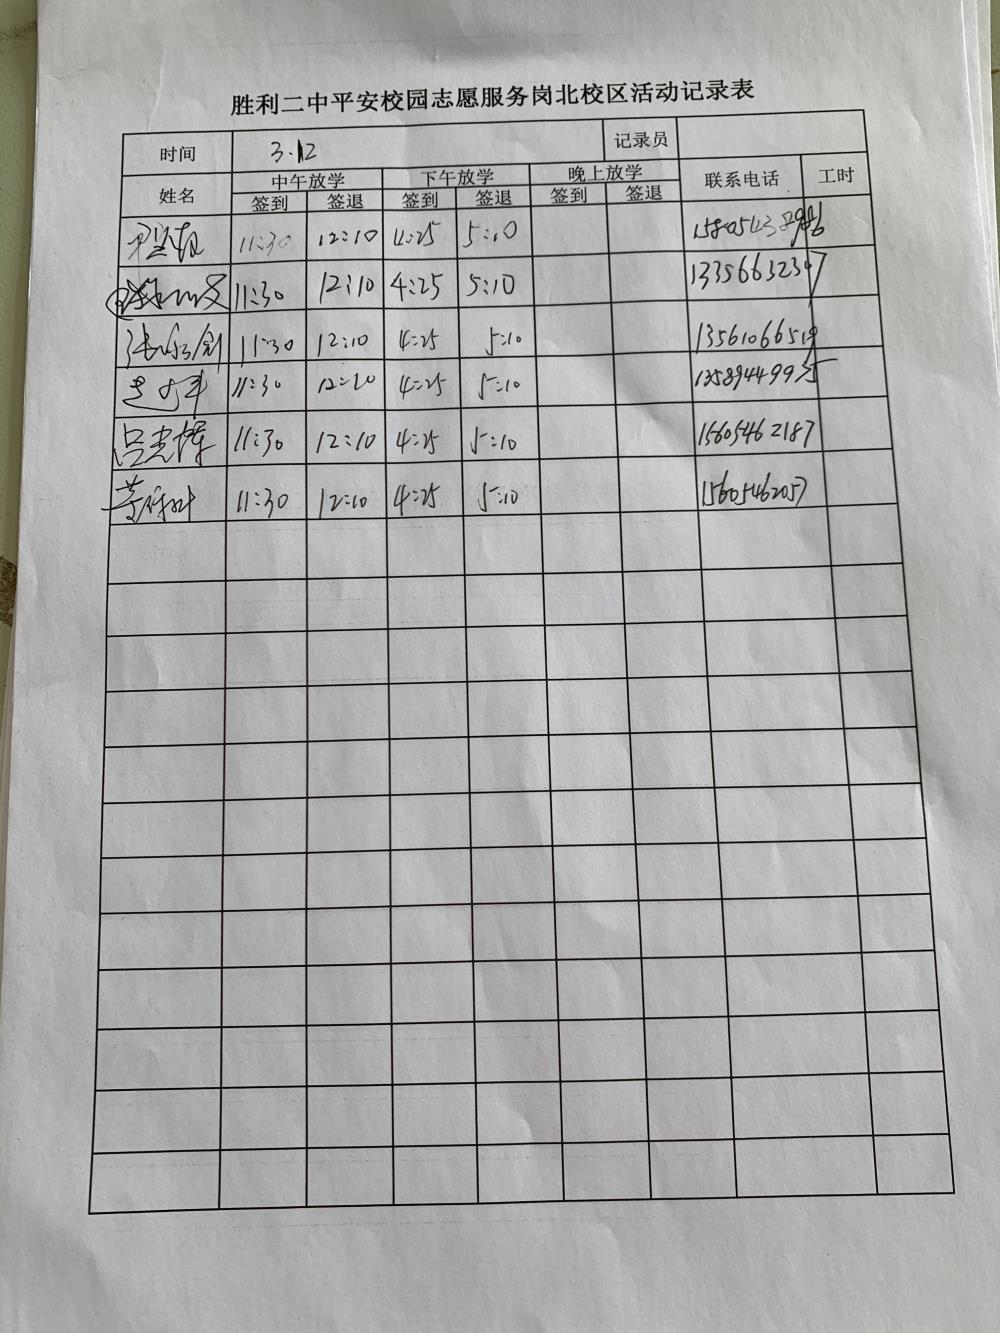 胜利二中平安校园志愿服务岗北校区活动记录表
时间 3.12 记录员
姓名 中午放学 下午放学 晚上放学 联系电话 工时
签到 签退 签到 签退 签到 签退
11:30 12:10 4:25 5:10
11:30 12:10 4:25 5:10
11:30 12:10 4:25 5:10 13561066519
11:30 4:25 5:10
吕光辉 11:30 12:10 4:25 5:10 15605462187
11:30 12:10 4:25 5:10 15605462057